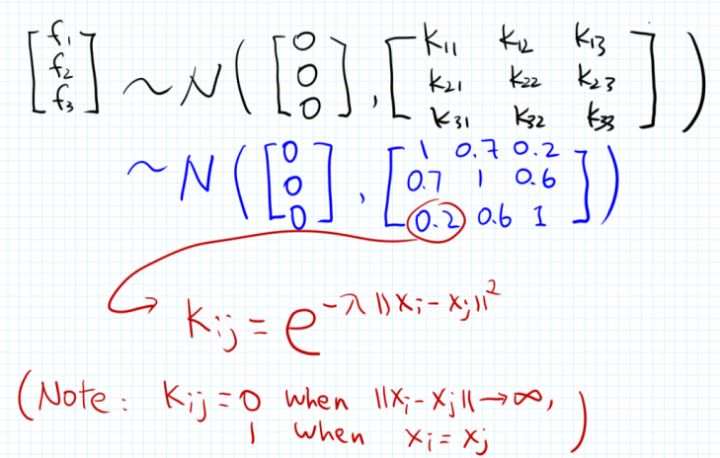 [f₁ f₂ f₃] ~ N([0 0 0], [K₁₁ K₁₂ K₁₃; K₂₁ K₂₂ K₂₃; K₃₁ K₃₂ K₃₃])
~ N([0 0 0], [1 0.7 0.2; 0.7 1 0.6; 0.2 0.6 1])
Kᵢⱼ = e^{-λ||xᵢ-xⱼ||²}
(Note: Kᵢⱼ = 0 when ||xᵢ-xⱼ|| → ∞,
1 when xᵢ = xⱼ)